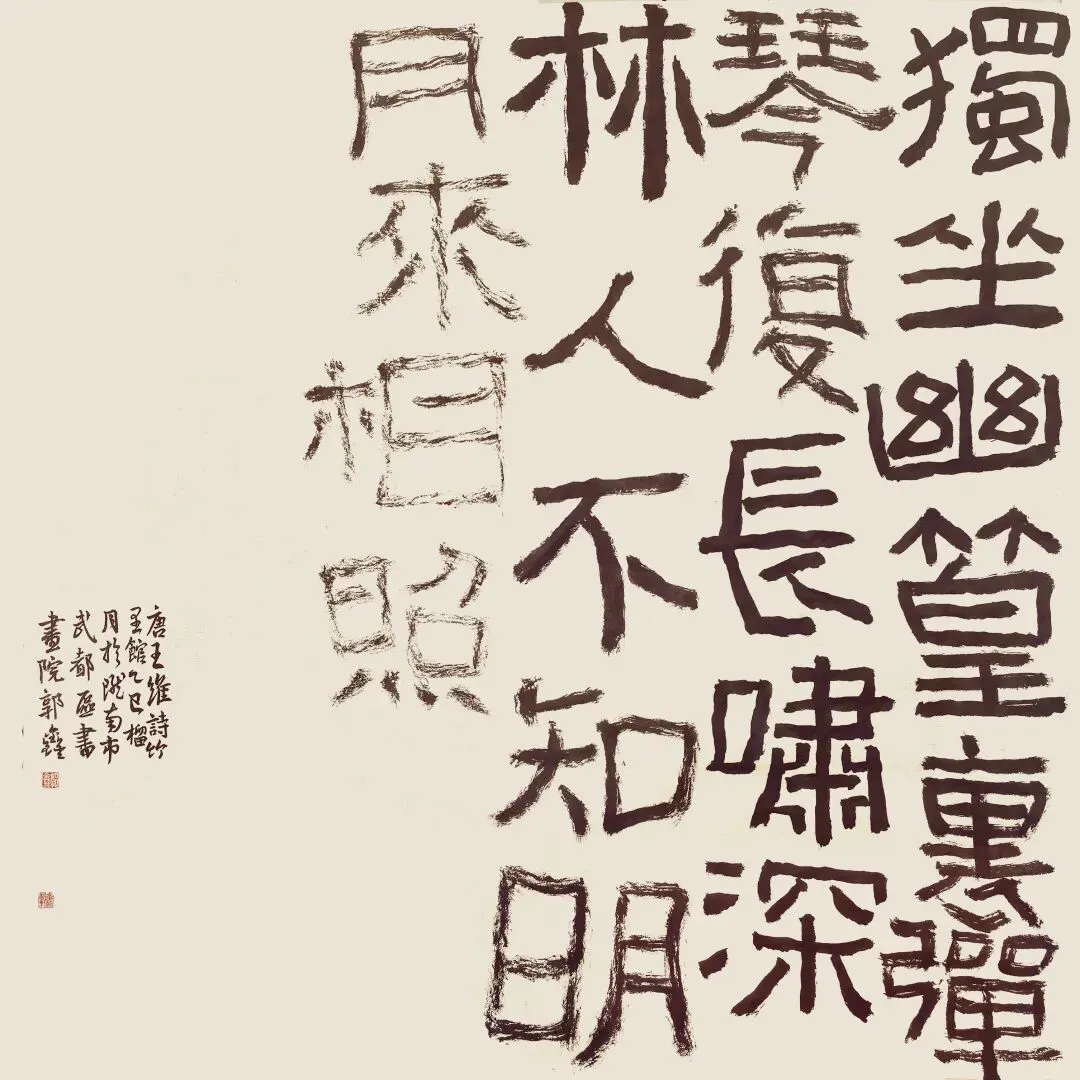 獨坐幽篁裏彈
琴復長嘯深
林人不知明
月來相照
唐王維詩竹
里館乙巳榴
月於隴南市
武都區書
畫院郭鑫